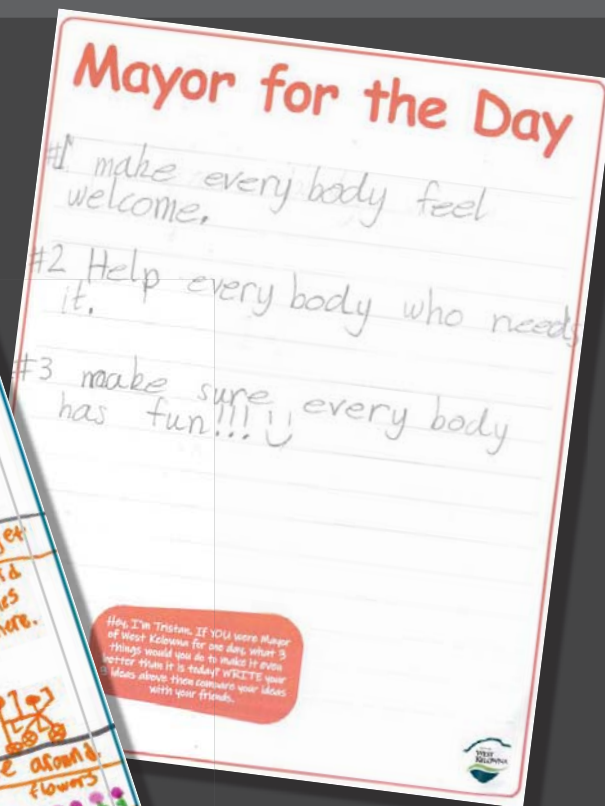 Mayor for the Day
#1 make every body feel
welcome.
#2 Help every body who needs
it.
#3 make sure every body
has fun!!!
Hey, I'm Tristan. If YOU were Mayor
of West Kelowna for one day, what 3
things would you do to make it even
better than it is today? WRITE your
ideas above them compare your ideas
with your friends.
WEST
KELOWNA
e around.
flowers